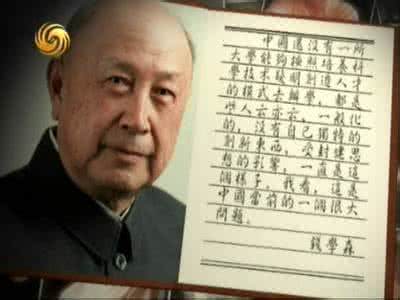 中國還沒有一所
大學能夠按照培養科
學技术發明創造人才
的模式去辦學，都是
些人云亦云，一般化
的，沒有自己獨特的
創新東西，受封建思
想的影響，一直是這
個樣子。我看，這是
中國當前的一個很大
問題。
錢學森